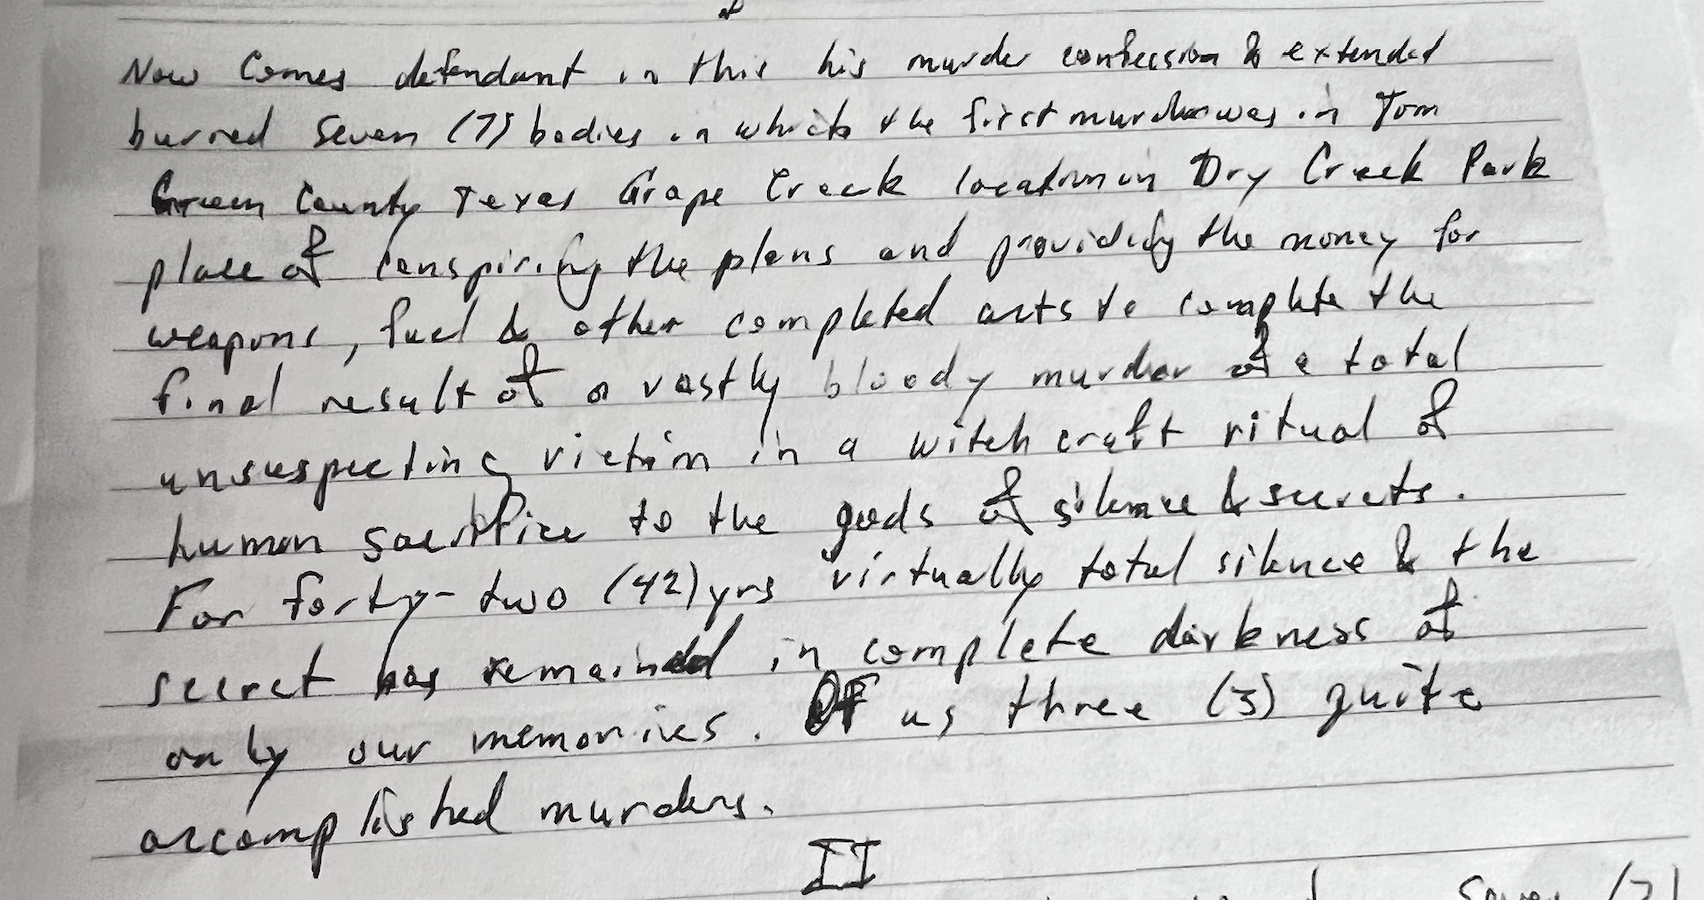 of
Now Comes defendant in this his murder confession & extended
burred Seven (7) bodies in which the first murder was in Tom
Green County Texas Grape Creek location in Dry Creek Park
place of conspiring the plans and providing the money for
weapons, fuel & other completed acts to complete the
final result of a vastly bloody murder of a total
unsuspecting victim in a witch craft ritual of
human sacrifice to the gods of silence & secrets.
For forty-two (42) yrs virtually total silence & the
secret has remained in complete darkness of
only our memories. Of us three (3) quite
accomplished murders.
II
Seven (7)